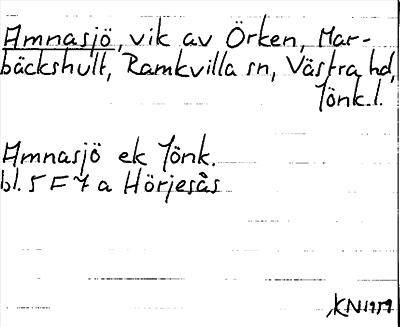 Amnasjö, vik av Örken, Mar-
bäckshult, Ramkvilla sn, Västra hd,
Jönk. l.
Amnasjö ek Jönk.
bl. 5 F 7 a Hörjesås
KN 1959